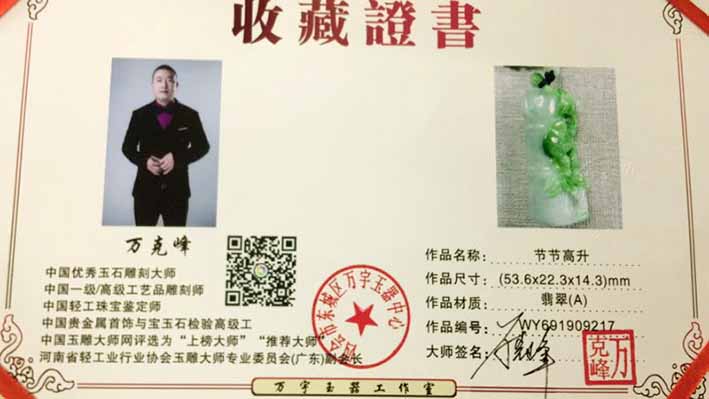 收藏證書
万克峰
中国优秀玉石雕刻大师
中国一级/高级工艺品雕刻师
中国轻工珠宝鉴定师
中国贵金属首饰与宝玉石检验高级工
中国玉雕大师网评选为“上榜大师”“推荐大师”
河南省轻工业行业协会玉雕大师专业委员会(广东)副会长
市东城区万宇玉器中心
作品名称: 节节高升
作品尺寸: (53.6x22.3x14.3)mm
作品材质: 翡翠(A)
作品编号: WY691909217
大师签名: 万克峰
万克峰
万宇玉器工作室